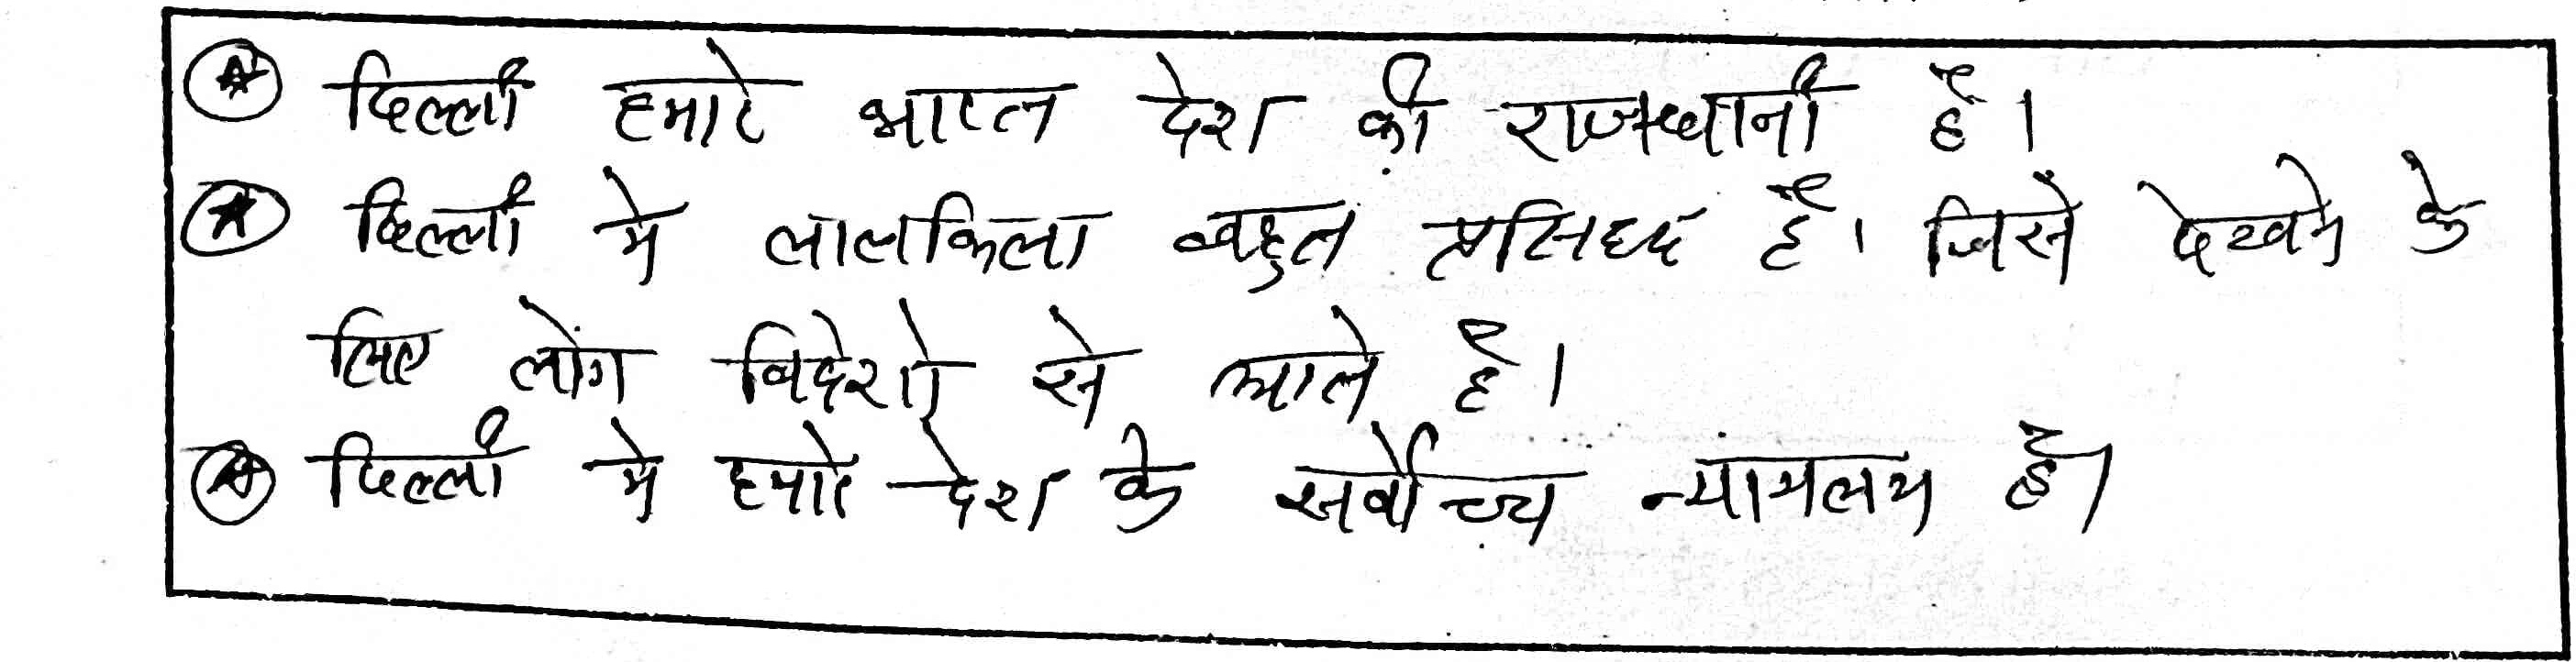 दिल्ली हमारे भारत देश की राजधानी है।
दिल्ली मे लालकिला बहुत प्रसिध्द है। जिसे देखने के
लिए लोंग विदेशो से आते है।
दिल्ली मे हमारे देश के सर्वोच्य न्यायलय है।